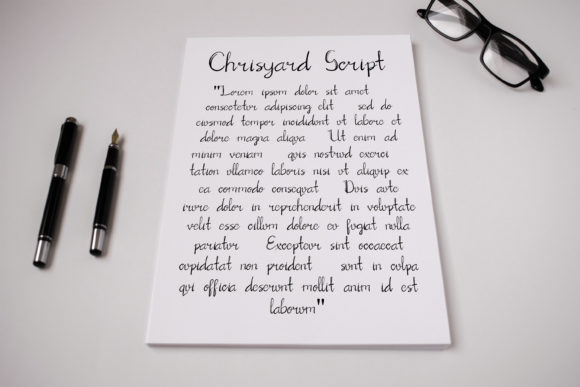 Chrisyard Script
"Lorem ipsum dolor sit amet
consectetur adipiscing elit sed do
eiusmod tempor incididunt ut labore et
dolore magna aliqua Ut enim ad
minim veniam quis nostrud exerci
tation ullamco laboris nisi ut aliquip ex
ea commodo consequat Duis aute
irure dolor in reprehenderit in voluptate
velit esse cillum dolore eu fugiat nulla
pariatur Excepteur sint occaecat
cupidatat non proident sunt in culpa
qui officia deserunt mollit anim id est
laborum"